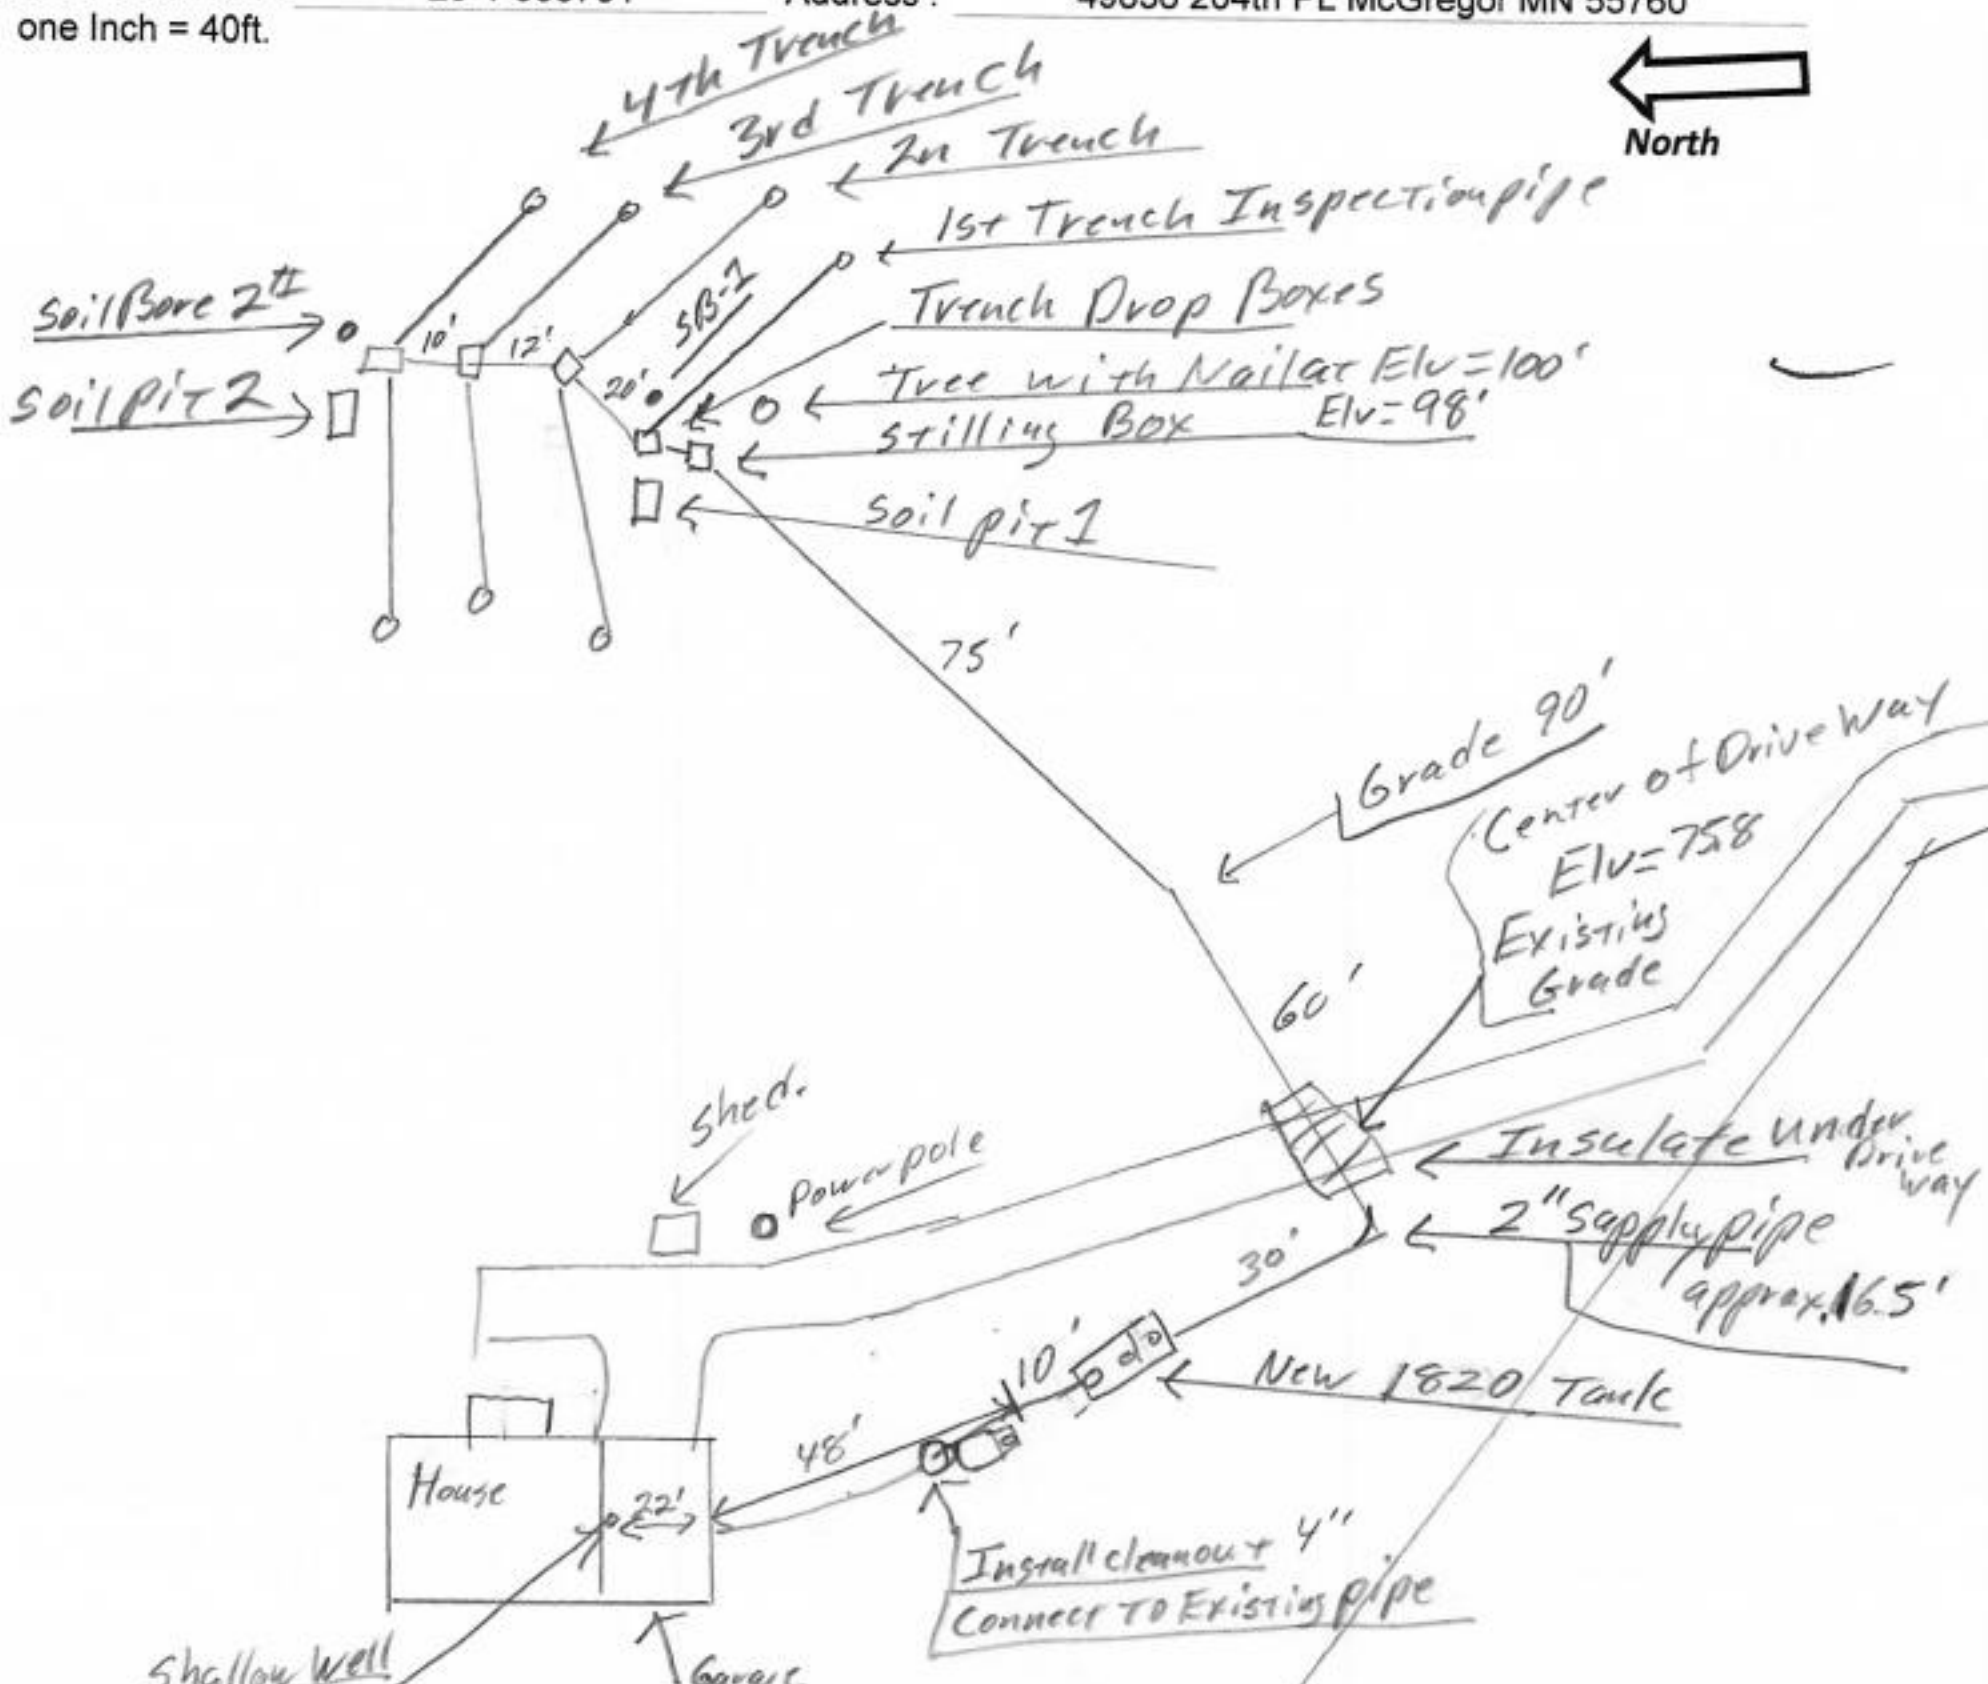 Address :
one Inch = 40ft.
North
4th Trench
3rd Trench
2n Trench
1st Trench Inspection pipe
Trench Drop Boxes
Tree with Nail at Elv=100'
Elv=98'
Stilling Box
Soil pit 1
Soil Bore 2
Soil pit 2
10'
12'
20'
SB-1
75'
Grade 90'
Center of Drive Way
Elv=75.8
Existing
Grade
60'
Shed.
Power pole
Insulate under
Drive
way
2" Supply pipe
approx. 165'
30'
10'
New 1820 Tank
48'
House
22'
Install cleanout 4"
Connect To Existing pipe
Shallow Well
Garage